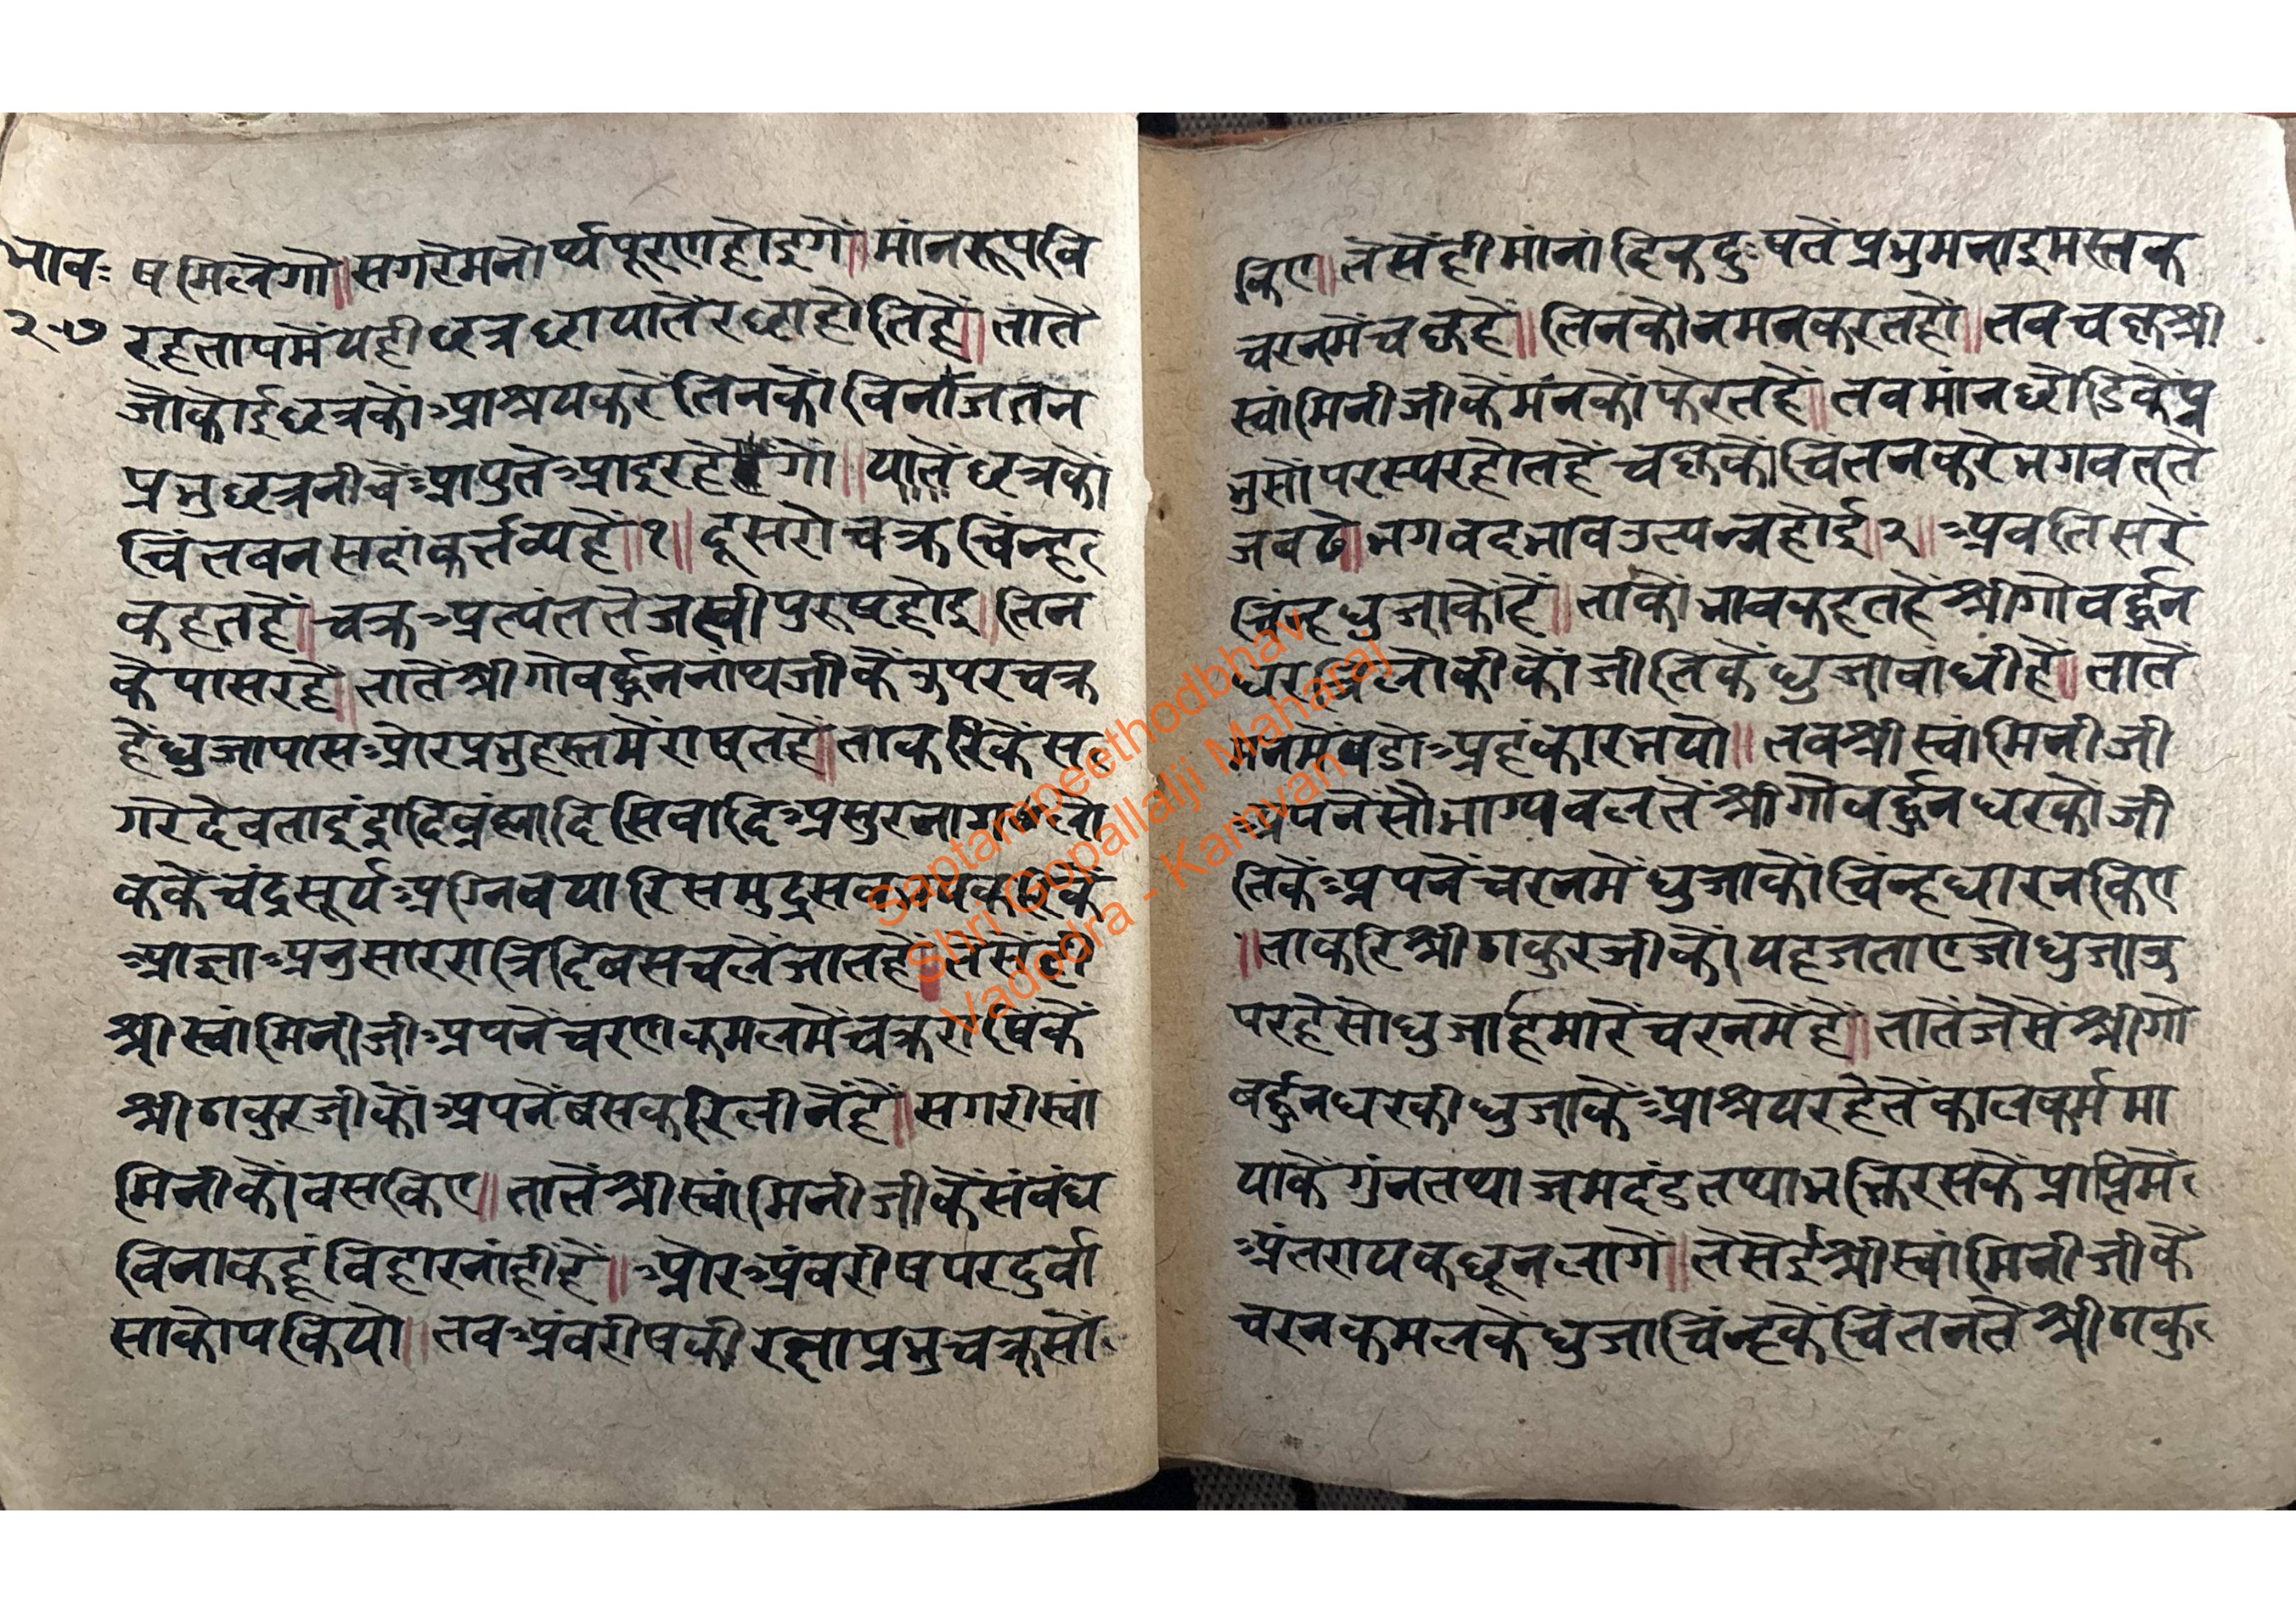 भावः
२७
ष मिलैगो॥ सगरेमनोर्थ्य पूरणहोइगें॥ मांनरूपवि
रहतापमें यही छत्र छायातें रछ्याहोतिहें॥ तातें
जोकोई छत्रकों आश्रयकरें तिनकों विनांजतन
प्रभु छत्रनीचें आपुतें आइरहेंगे॥ यातें छत्रकों
चिंतवन सदां कर्त्तव्यहें॥१॥ दूसरो चक्र चिंन्ह
कहतहें॥ चक्र अत्यंत तेजस्वी पुरुष होइ॥ तिन
कें पासरहें॥ तातें श्रीगोवर्द्धननांथजीकें ऊपरचक्र
हें धुजापास ओर प्रभु हस्तमें राषतहें॥ ताकरिकें स
गरे देवता इंद्रादि ब्रंह्मादि सिवादि असुर नाग
ककें चंद्र सूर्य अग्नि वयारि समुद्र
आज्ञा अनुसार रात्रि दिवस चलें जातहें॥ तेसेंही
श्रीस्वांमिनीजी अपनें चरणकमलमें चक्र राषिकें
श्रीठाकुरजीकों अपनें बसकरि लीनेंहें॥ सगरीस्वां
मिनीकों वसकिए॥ तातें श्रीस्वांमिनीजीकें संबंध
विनाकहूं विहारनांहींहें॥ ओर अंवरीष पर दुर्वा
साकोप कियो॥ तव अंवरीषकी रक्षा प्रभु चक्रसों
किए॥ तेसेंही मांनांदिक दुःषतें प्रभु मनाइ मस्तक
चरनमें चक्रहें॥ तिनकों नमनकरतहों॥ तव चक्र श्री
स्वांमिनीजीकें मंनकों फेरतहें॥ तव मांन छोडिकें प्र
भुसों परस्परहोतहें चक्रकों चिंतनकरें भगवततें
जवढें॥ भगवदभाव उत्पन्नहोई॥२॥ अव तिसरें
चिंन्ह धुजाकोंहें॥ ताकों भाव कहतहें श्रीगोवर्द्धन
धर त्रिलोकीकों जीतिकें धुजावांधीहें॥ तातें
मनमें वडो अहंकारभयो॥ तव श्रीस्वांमिनीजी
अपनें सौभाग्य वलतें श्रीगोवर्द्धनधरकों जी
तिकें अपनें चरनमें धुजाकों चिंन्ह धारनकिए
॥ताकरि श्रीठाकुरजीकों यह जताए जो धुजा ऊ
परहें सो धुजा हमारें चरनमेंहें॥ तातें जेसें श्रीगो
वर्द्धनधरकी धुजाकें आश्रयरहेतें कालकर्म मा
याकें गुंन तथा जमदंड तथा भक्तिरसकें प्राप्तिमें
अंतराय कछू न लागें॥ तेसेंई श्रीस्वांमिनीजीकें
चरनकमलकें धुजाचिंन्हकें चिंतनतें श्रीठाकु
Saptampeethodbhav
Shri Gopallalji Maharaj
Vadodra - Kamvan